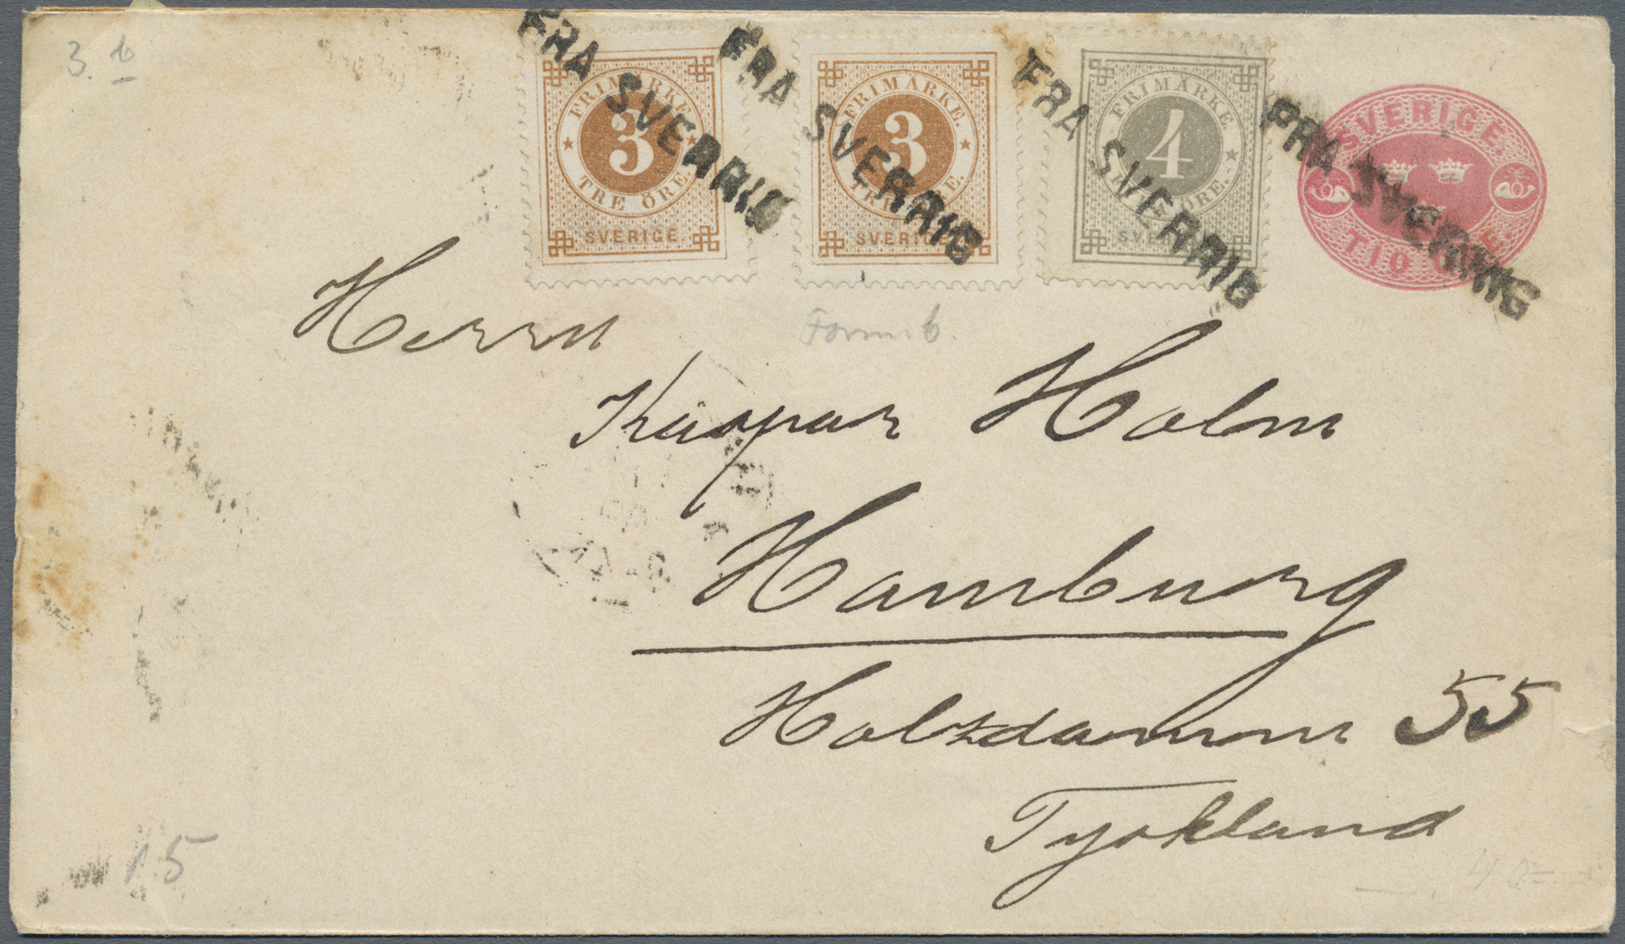 3. b
FRA SVERRIG
FRA SVERRIG
FRA SVERRIG
FRA SVERRIG
FRIMÄRKE.
3
TRE ÖRE.
SVERIGE
FRIMÄRKE.
3
TRE ÖRE.
SVERIGE
FRIMÄRKE.
4
ÖRE.
SVERIGE
SVERIGE.
TIO ÖRE
Herrn
Kaspar Holm
Hamburg
Holzdamm 55
Tyskland
15